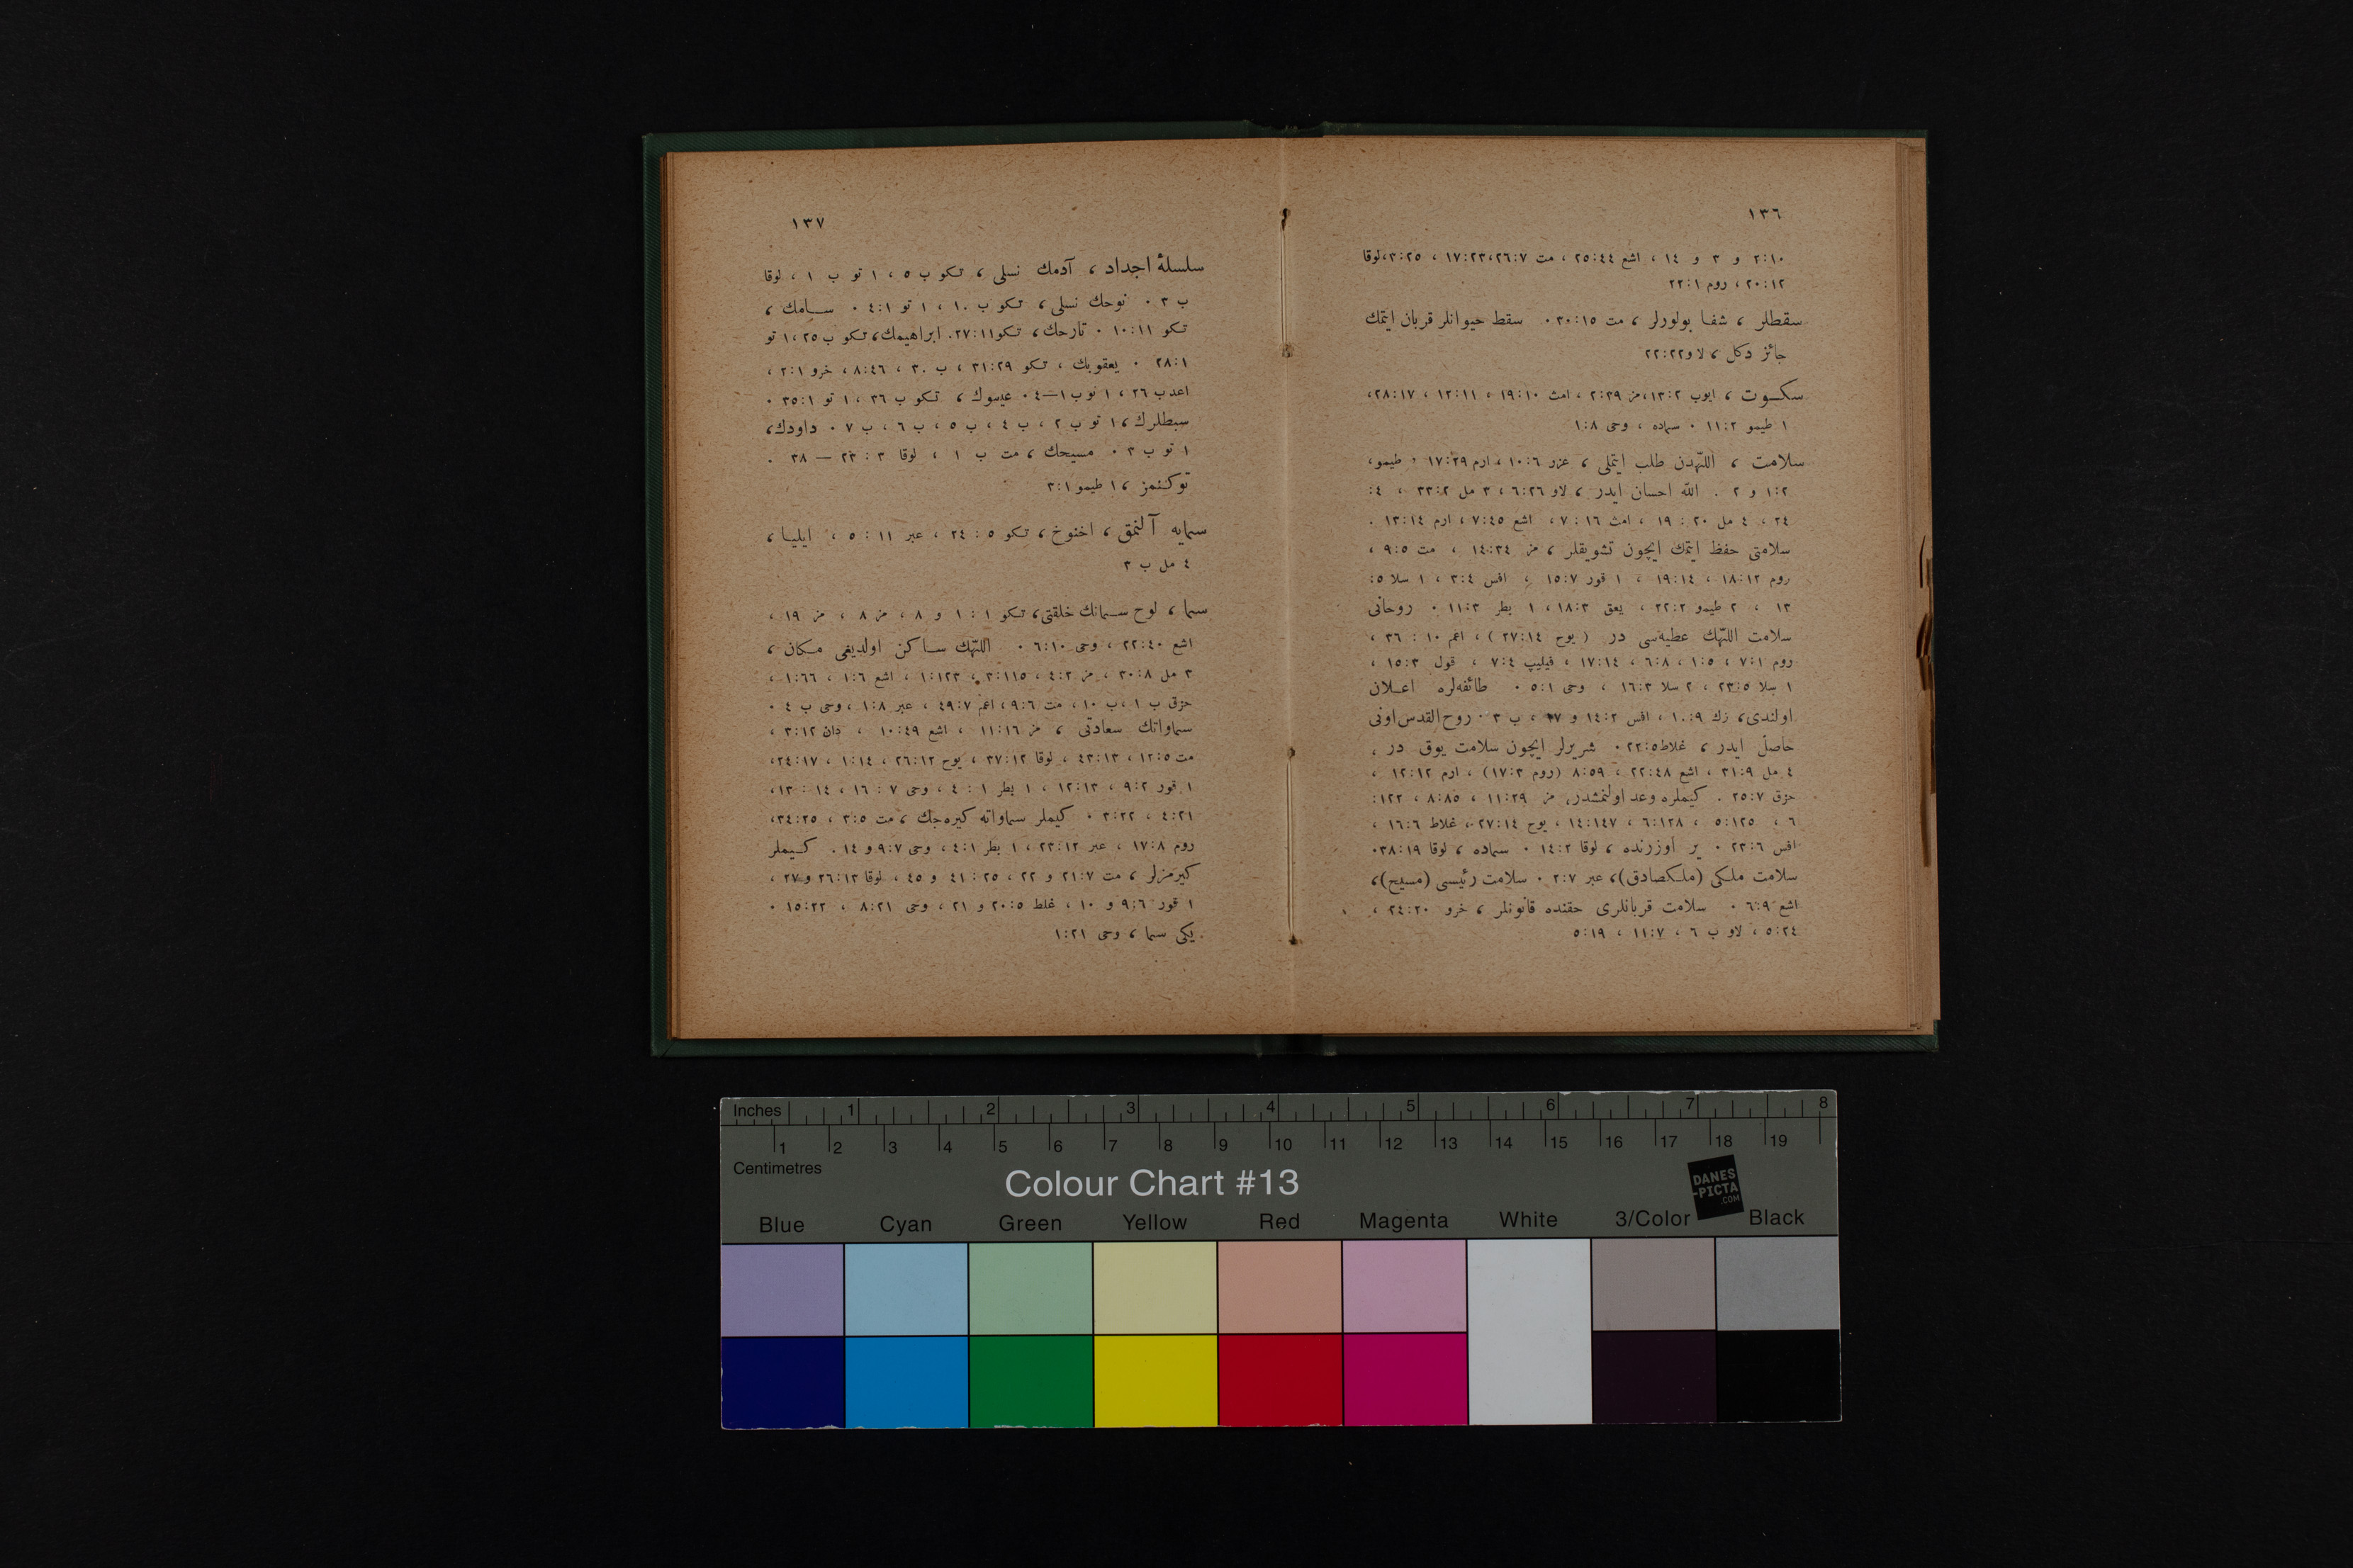 ١٣٦
٢:١٠ و ٣ و ١٤ ، اشع ٢٥:٤٤ ، مت ٢٦:٧،‏١٧:٢٣ ، ٣:٢٥،لوقا
٢٠:١٢ ، روم ٢٢:١
سقطلر ، شفا بولورلر ، مت ٣٠:١٥ ٠ سقط حیوانلر قربان ایتمك
جائز دكل ، لاو٢٢:٢٢
سكوت ، ایوب ١٣:٢،مز ٢:٣٩ ، امث ١٩:١٠ ، ١٢:١١ ، ٢٨:١٧،
١ طیمو ١١:٢ ٠ سماده ، وحی ١:٨
سلامت ، اللّٰهدن طلب ایتملی ، عزر ١٠:٦ ، ارم ١٧:٢٩ ، طیمو،
١:٢ و ٢ . اللّٰه احسان ایدر ، لاو ٦:٢٦ ، ٣ مل ٣٣:٢ ، ٤:
٢٤ ، ٤ مل ٢٠ : ١٩ ، امث ١٦ : ٧ ، اشع ٧:٤٥ ، ارم ١٣:١٤ .
سلامتی حفظ ایتمك ایچون تشویقلر ، مز ١٤:٣٤ ، مت ٩:٥ ،
روم ١٨:١٢ ، ١٩:١٤ ، ١ قور ١٥:٧ ، افس ٣:٤ ، ١ سلا ٥:
١٣ ، ٢ طیمو ٢٢:٢ ، یعق ١٨:٣ ، ١ بطر ١١:٣ ٠ روحانی
سلامت اللّٰهك عطیه‌سی در ( یوح ٢٧:١٤ ) ، اعم ١٠ : ٣٦ ،
روم ٧:١ ، ١:٥ ، ٦:٨ ، ١٧:١٤ ، فیلیپ ٧:٤ ، قول ١٥:٣ ،
١ سلا ٢٣:٥ ، ٢ سلا ١٦:٣ ، وحی ٥:١ ٠ طائفه‌لره اعلان
اولندی، زك ١٠:٩ ، افس ١٤:٢ و ١٧ ، ب ٣ ٠ روح‌القدس‌اونی
حاصل ایدر ، غلاط٢٢:٥ ٠ شریرلر ایچون سلامت یوق در ،
٤ مل ٣١:٩ ، اشع ٢٢:٤٨ ، ٨:٥٩ (روم ١٧:٣) ، ارم ١٢:١٢ ،
حزق ٢٥:٧ . كیملره وعد اولنمشدر، مز ١١:٢٩ ، ٨:٨٥ ، ١٢٢:
٦ ، ٥:١٢٥ ، ٦:١٢٨ ، ١٤:١٤٧ ، یوح ٢٧:١٤ ، غلاط ١٦:٦ ،
افس ٢٣:٦ ٠ یر اوزرنده ، لوقا ١٤:٢ ٠ سماده ، لوقا ٣٨:١٩٠
سلامت ملكی (ملكصادق)، عبر ٢:٧ ٠ سلامت رئیسی (مسیح)،
اشع ٦:٩ ٠ سلامت قربانلری حقنده قانونلر ، خرو ٢٤:٢٠ ،
٥:٢٤ ، لاو ب ٦ ، ١١:٧ ، ٥:١٩
١٣٧
سلسلهٔ اجداد ، آدمك نسلی ، تكو ب ٥ ، ١ تو ب ١ ، لوقا
ب ٣ ٠ نوحك نسلی ، تكو ب ١٠ ، ١ تو ٤:١ ٠ سامك ،
تكو ١٠:١١ ٠ تارحك ، تكو٢٧:١١. ابراهیمك، تكو ب ٢٥ ،١ تو
٢٨:١ ٠ یعقوبك ، تكو ٣١:٢٩ ، ب ٣٠ ، ٨:٤٦ ، خرو ٢:١ ،
اعدب ٢٦ ، ١ توب ١—٤ ٠ عیسوك ، تكو ب ٣٦ ، ١ تو ٣٥:١ ٠
سبطلرك ،١ تو ب ٢ ، ب ٤ ، ب ٥ ، ب ٦ ، ب ٧ ٠ داودك،
١ تو ب ٣ ٠ مسیحك ، مت ب ١ ، لوقا ٣ : ٢٣ — ٣٨ .
توكنمز ، ١ طیمو ٣:١
سمایه آلنمق ، اخنوخ ، تكو ٥ : ٢٤ ، عبر ١١ : ٥ ، ایلیا ،
٤ مل ب ٢
سما ، لوح سمانك خلقتی، تكو ١ : ١ و ٨ ، مز ٨ ، مز ١٩ ،
اشع ٢٢:٤٠ ، وحی ٦:١٠ ٠ اللّٰهك ساكن اولدیغی مكان ،
٣ مل ٣٠:٨ ، مز ٤:٢ ، ٣:١١٥ ، ١:١٢٣ ، اشع ١:٦ ، ١:٦٦ ،
حزق ب ١ ،ب ١٠ ، مت ٩:٦ ، اعم ٤٩:٧ ، عبر ١:٨ ، وحی ب ٤ ٠
سماواتك سعادتی ، مز ١١:١٦ ، اشع ١٠:٤٩ ، دان ٣:١٢ ،
مت ١٢:٥ ، ٤٣:١٣ ، لوقا ٣٧:١٢ ، یوح ٢٦:١٢ ، ١:١٤ ، ٢٤:١٧،
١ قور ٩:٢ ، ١٢:١٣ ، ١ بطر ١ : ٤ ، وحی ٧ : ١٦ ، ١٤ : ١٣،
٤:٢١ ، ٣:٢٢ ٠ كیملر سماواته كیره‌جك ، مت ٣:٥ ، ٣٤:٢٥،
روم ١٧:٨ ، عبر ٢٣:١٢ ، ١ بطر ٤:١ ، وحی ٩:٧ و ١٤ . كیملر
كیرمزلر ، مت ٢١:٧ و ٢٢ ، ٢٥ : ٤١ و ٤٥ ، لوقا ٢٦:١٣ و ٢٧ ،
١ قور ٩:٦ و ١٠ ، غلط ٢٠:٥ و ٢١ ، وحی ٨:٢١ ، ١٥:٢٢ ٠
یكی سما ، وحی ١:٢١
Inches 1 2 3 4 5 6 7 8
1 2 3 4 5 6 7 8 9 10 11 12 13 14 15 16 17 18 19
Centimetres
Colour Chart #13
DANES
-PICTA
.COM
Blue Cyan Green Yellow Red Magenta White 3/Color Black